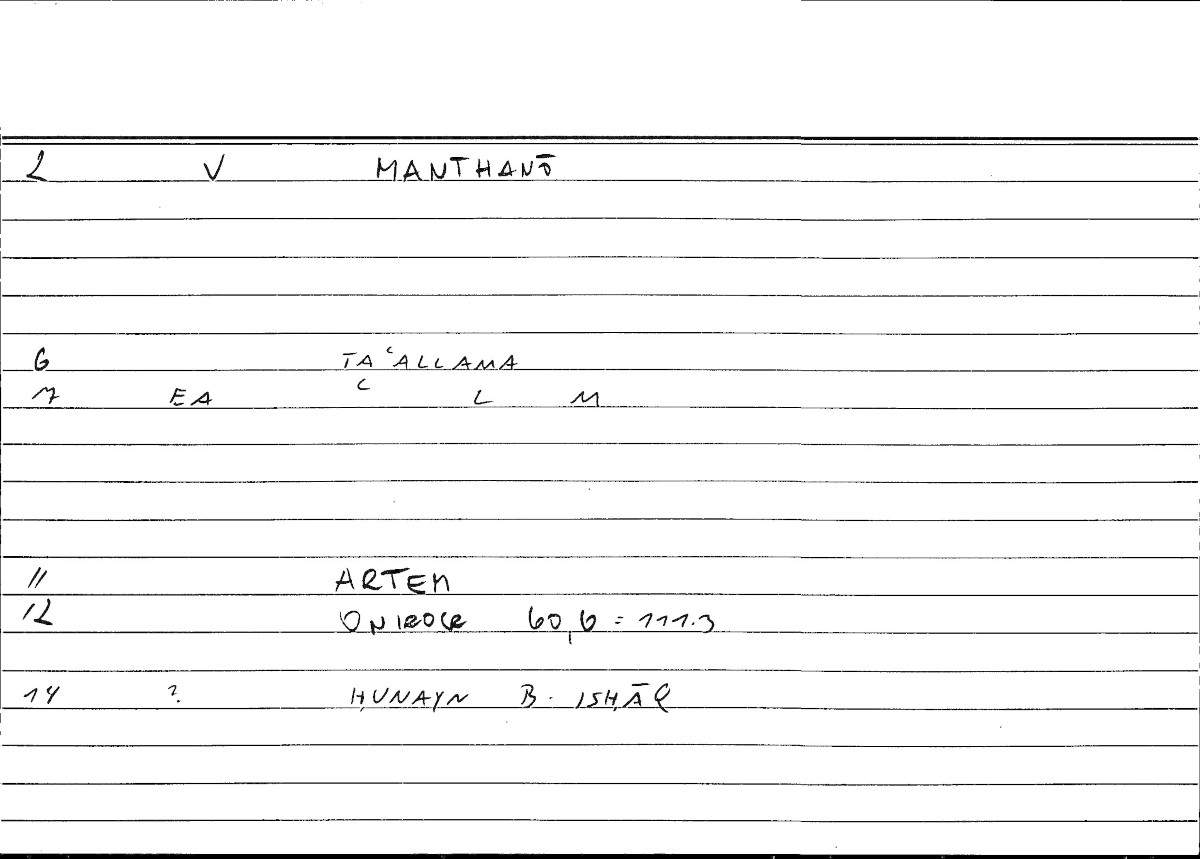 2 V MANTHANŌ
6 TAʿALLAMA
7 EA ʿ L M
11 ARTEM
12 ONIROCR 60,6 = 111.3
14 ? ḤUNAYN B. ISḤĀQ